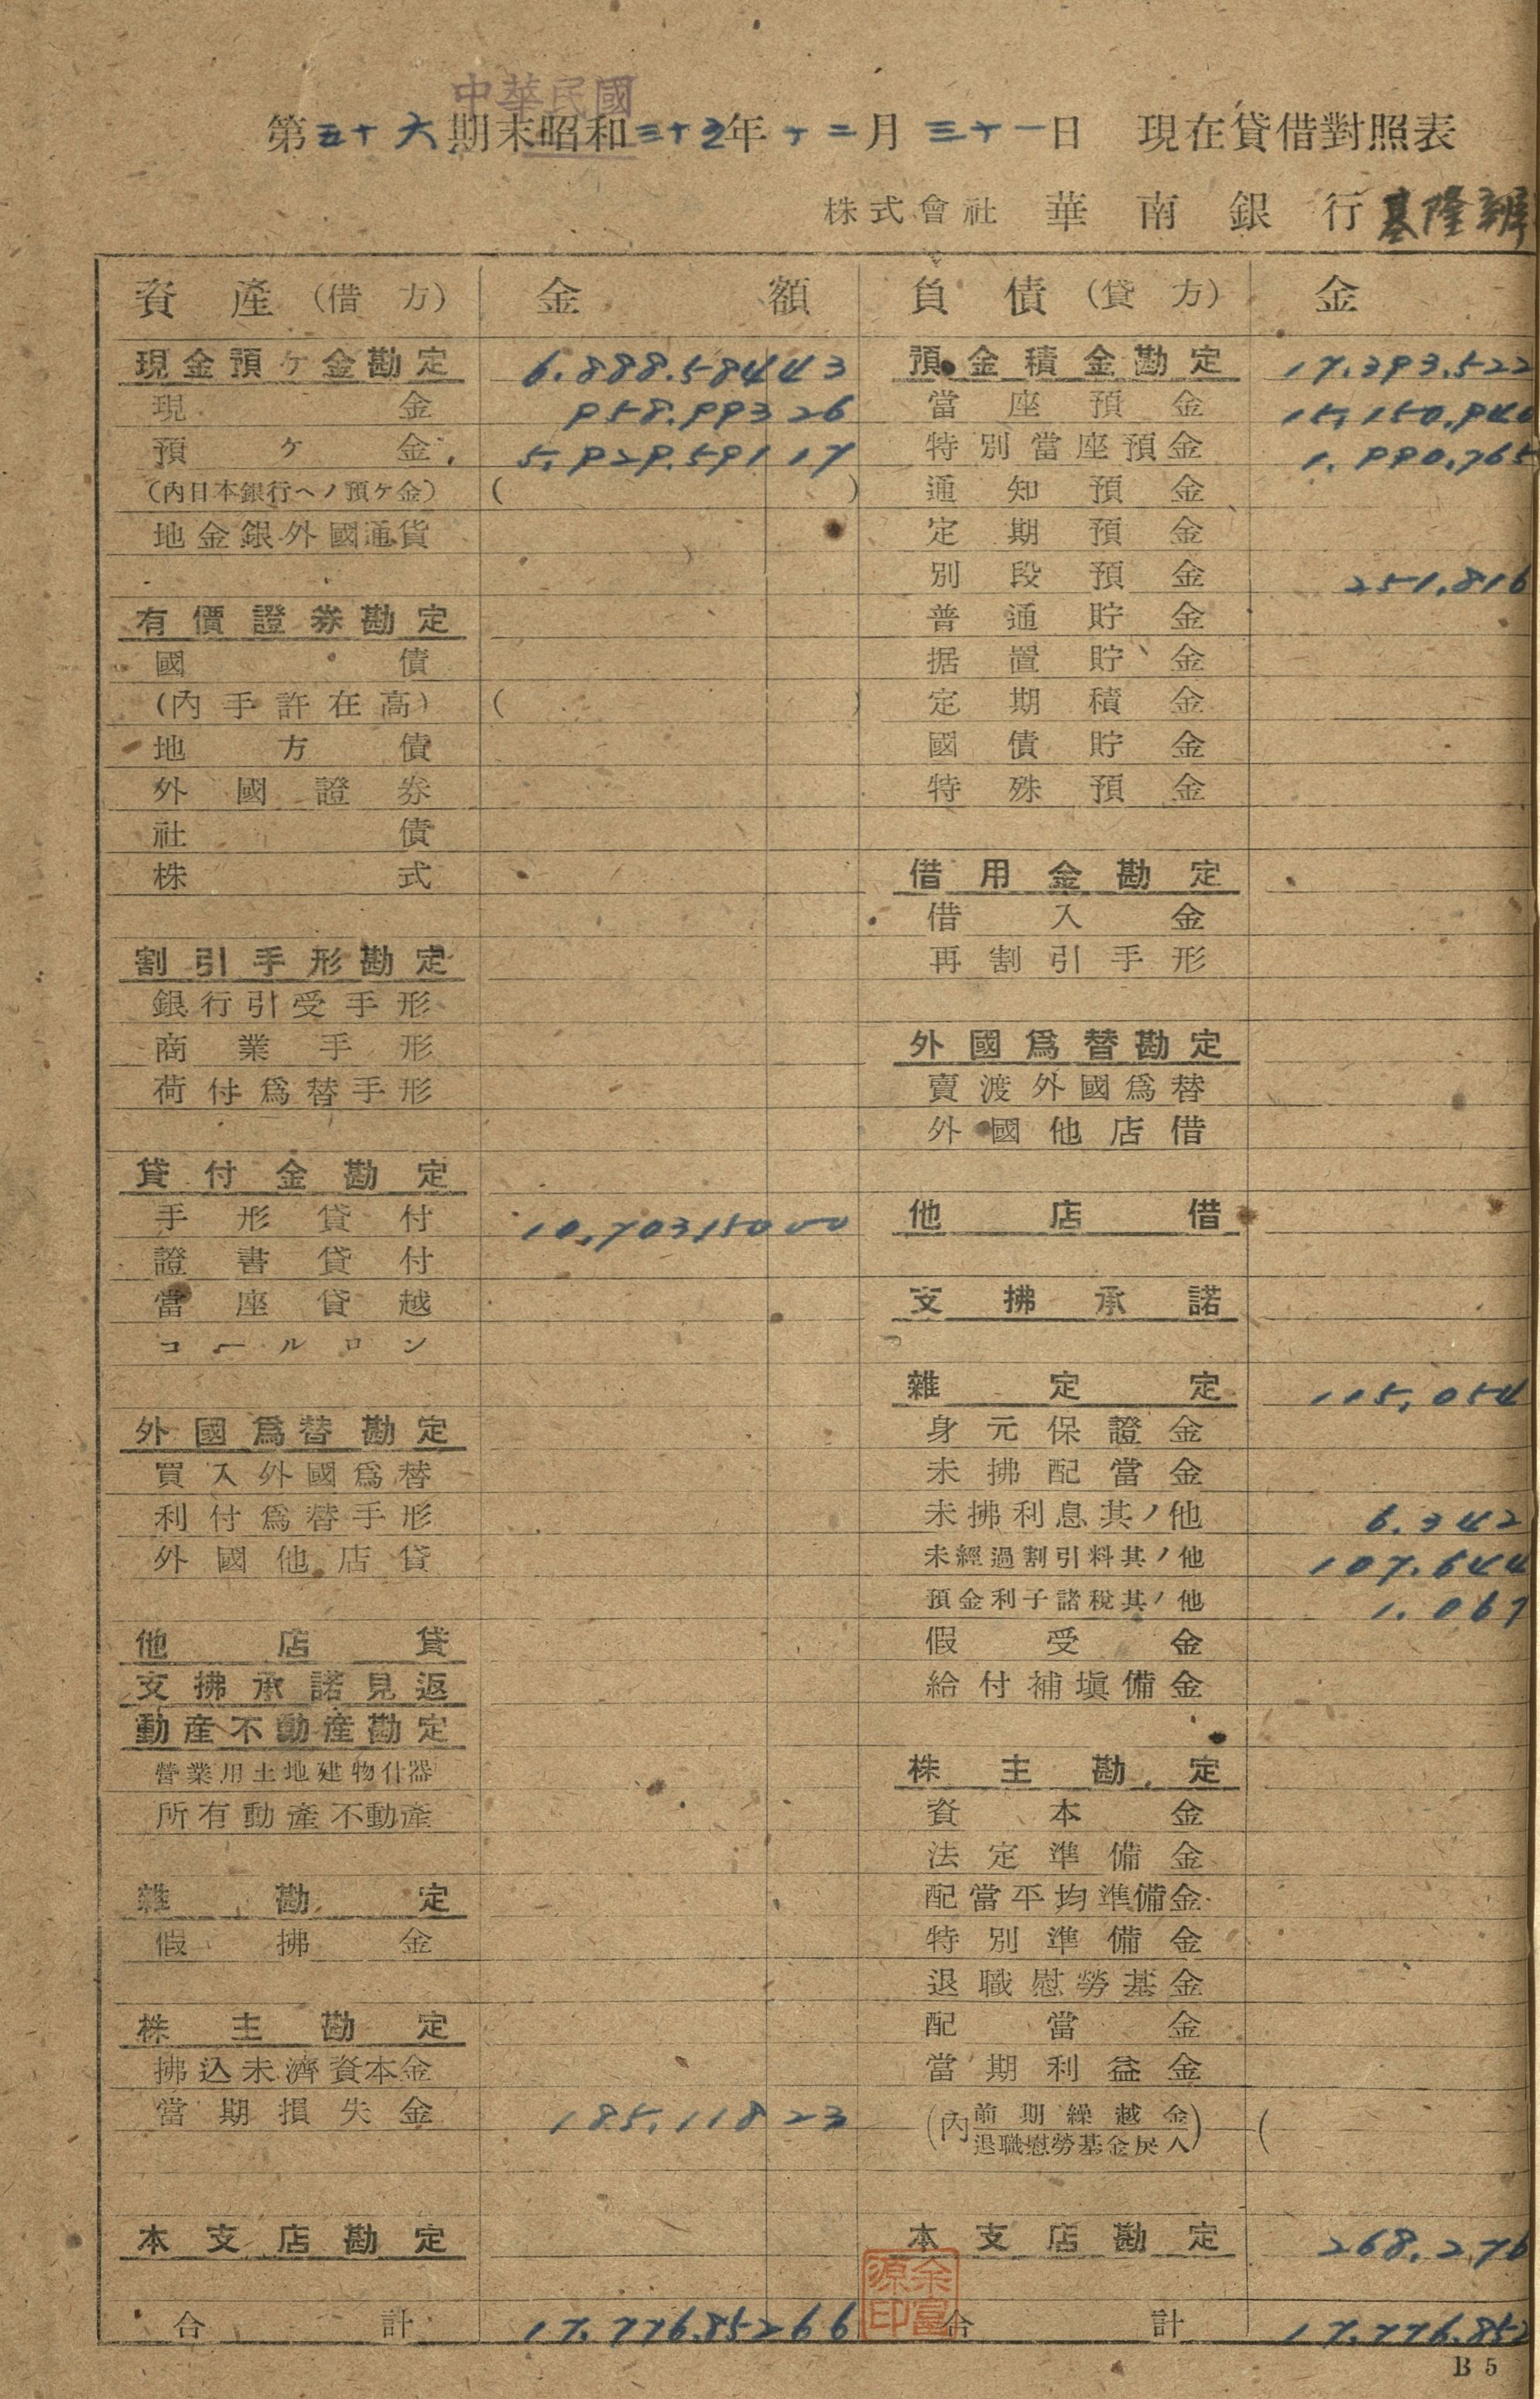 中華民國
第五十六期末昭和三十五年十二月三十一日 現在貸借對照表
株式會社 華南銀行 基隆辦
資產(借方) 金額
現金預ケ金勘定 6.888.584 43
現金 958.993 26
預ケ金 5.929.591 17
(內日本銀行ヘノ預ケ金) ( )
地金銀外國通貨
有價證券勘定
國債
(內手許在高) ( )
地方債
外國證券
社債
株式
割引手形勘定
銀行引受手形
商業手形
荷付爲替手形
貸付金勘定
手形貸付 10.703150 00
證書貸付
當座貸越
コールロン
外國爲替勘定
買入外國爲替
利付爲替手形
外國他店貸
他店貸
支拂承諾見返
動產不動產勘定
營業用土地建物什器
所有動產不動產
雜勘定
假拂金
株主勘定
拂込未濟資本金
當期損失金 185.118 23
本支店勘定
合計 17.776.852 66
負債(貸方) 金
預金積金勘定 17.393.522
當座預金 15.150.940
特別當座預金 1.990.765
通知預金
定期預金
別段預金 251.816
普通貯金
据置貯金
定期積金
國債貯金
特殊預金
借用金勘定
借入金
再割引手形
外國爲替勘定
賣渡外國爲替
外國他店借
他店借
支拂承諾
雜定定 115.054
身元保證金
未拂配當金
未拂利息其ノ他 6.342
未經過割引料其ノ他 107.644
預金利子諸稅其ノ他 1.067
假受金
給付補塡備金
株主勘定
資本金
法定準備金
配當平均準備金
特別準備金
退職慰勞基金
配當金
當期利益金
(內 前期繰越金
退職慰勞基金戾入) (
本支店勘定 268.276
余富源印
合計 17.776.852
B5